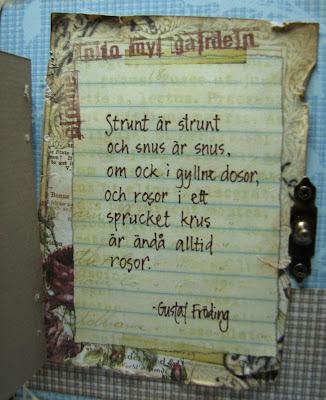 into my garden
Strunt är strunt
och snus är snus,
om ock i gyllne dosor,
och rosor i ett
sprucket krus
är ändå alltid
rosor.
-Gustaf Fröding